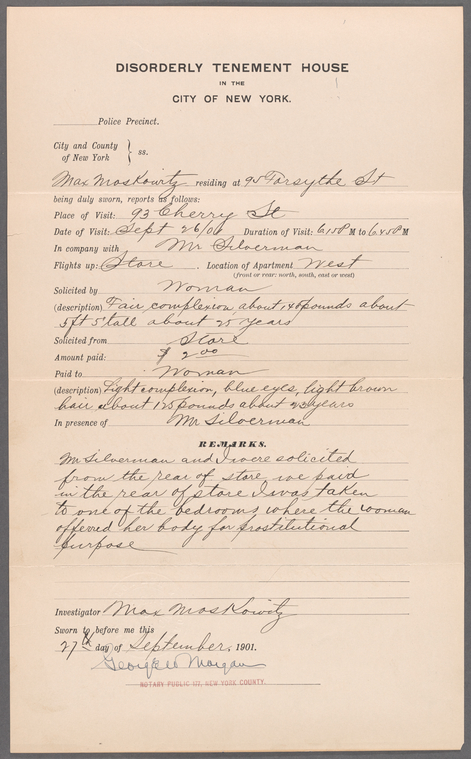 DISORDERLY TENEMENT HOUSE
IN THE
CITY OF NEW YORK.
Police Precinct.
City and County
of New York } ss.
Max Moskowitz residing at 95 Forsythe St
being duly sworn, reports as follows:
Place of Visit: 93 Cherry St
Date of Visit: Sept 26/01 Duration of Visit: 6.15 P M to 6.45 P M
In company with Mr Silverman
Flights up: Store. Location of Apartment West
(front or rear: north, south, east or west)
Solicited by Woman
(description) Fair complexion, about 140 pounds about
5 ft 5 tall about 25 years
Solicited from Store
Amount paid: $ 2.00
Paid to Woman
(description) Light complexion, blue eyes, light brown
hair about 125 pounds about 23 years
In presence of Mr Silverman
REMARKS.
Mr Silverman and I were solicited
from the rear of store, we paid
in the rear of store I was taken
to one of the bedrooms where the woman
offered her body for prostitutional
purpose
Investigator Max Moskowitz
Sworn to before me this
27th day of September, 1901.
George W Morgan
NOTARY PUBLIC NEW YORK COUNTY.